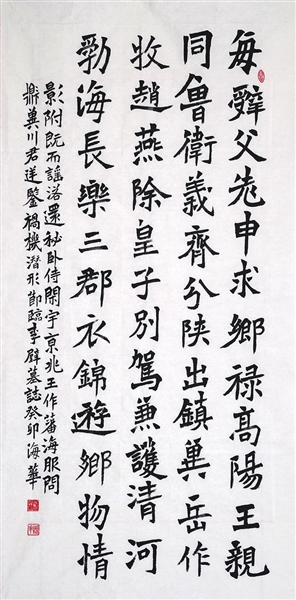 每辟父兆申求鄉禄高陽王親
同魯衛義齊分陝出鎮冀岳作
牧趙燕除皇子別駕兼護清河
勃海長樂三郡衣錦遊鄉物情
影附既而謠洛還秘卧侍閑宇京兆王作蕃海服問
鼎冀川君送鑒禍機潜形節臨李璧墓誌癸卯海華